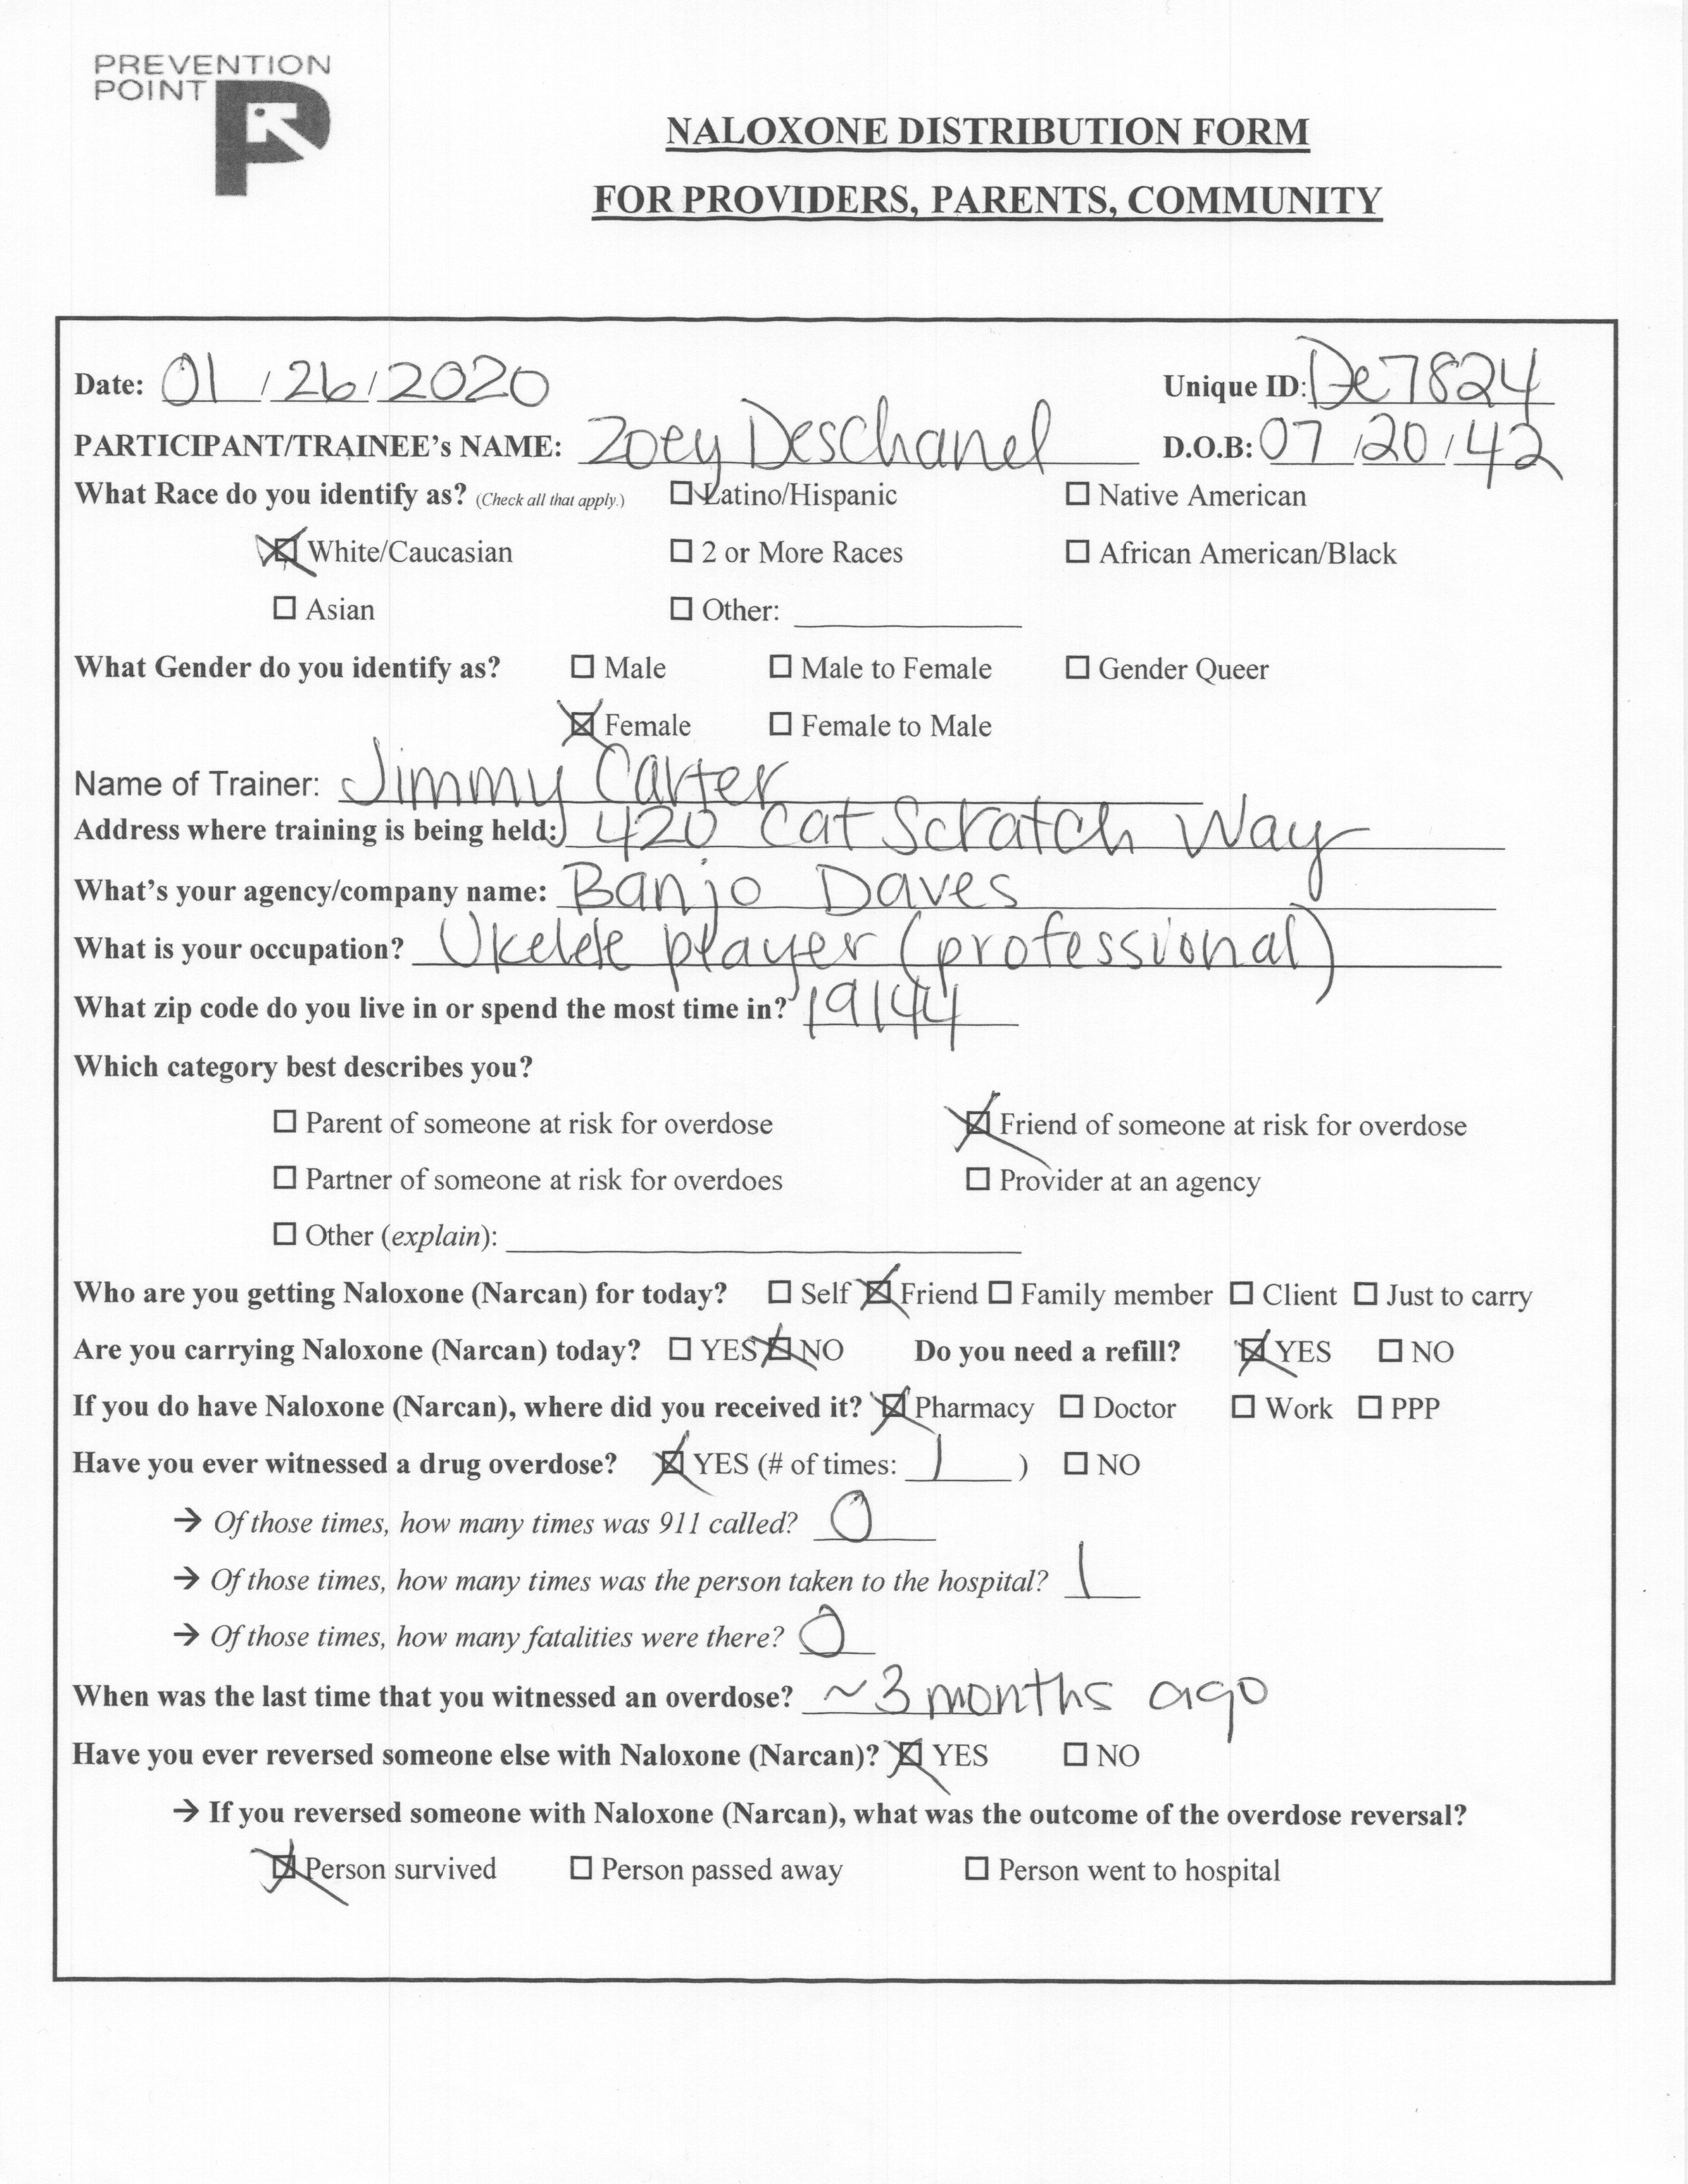 PREVENTION
POINT
NALOXONE DISTRIBUTION FORM
FOR PROVIDERS, PARENTS, COMMUNITY
Date: 01 / 26 / 2020 Unique ID: De7824
PARTICIPANT/TRAINEE's NAME: Zoey Deschanel D.O.B: 07 / 20 / 42
What Race do you identify as? (Check all that apply.) ☐ Latino/Hispanic ☐ Native American
☒ White/Caucasian ☐ 2 or More Races ☐ African American/Black
☐ Asian ☐ Other: ____
What Gender do you identify as? ☐ Male ☐ Male to Female ☐ Gender Queer
☒ Female ☐ Female to Male
Name of Trainer: Jimmy Carter
Address where training is being held: 420 Cat Scratch Way
What's your agency/company name: Banjo Daves
What is your occupation? Ukelele player (professional)
What zip code do you live in or spend the most time in? 19144
Which category best describes you?
☐ Parent of someone at risk for overdose ☒ Friend of someone at risk for overdose
☐ Partner of someone at risk for overdoes ☐ Provider at an agency
☐ Other (explain): ____
Who are you getting Naloxone (Narcan) for today? ☐ Self ☒ Friend ☐ Family member ☐ Client ☐ Just to carry
Are you carrying Naloxone (Narcan) today? ☐ YES ☒ NO Do you need a refill? ☒ YES ☐ NO
If you do have Naloxone (Narcan), where did you received it? ☒ Pharmacy ☐ Doctor ☐ Work ☐ PPP
Have you ever witnessed a drug overdose? ☒ YES (# of times: 1 ) ☐ NO
→ Of those times, how many times was 911 called? 0
→ Of those times, how many times was the person taken to the hospital? 1
→ Of those times, how many fatalities were there? 0
When was the last time that you witnessed an overdose? ~3 months ago
Have you ever reversed someone else with Naloxone (Narcan)? ☒ YES ☐ NO
→ If you reversed someone with Naloxone (Narcan), what was the outcome of the overdose reversal?
☒ Person survived ☐ Person passed away ☐ Person went to hospital